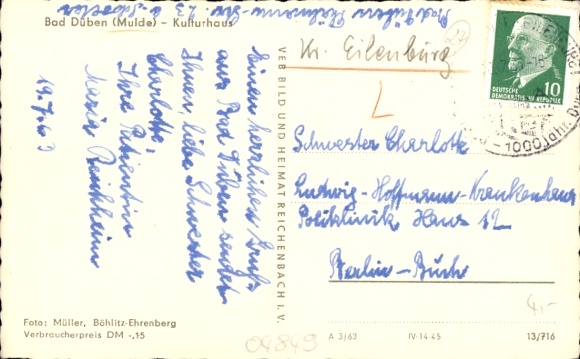 Bad Düben (Mulde) – Kulturhaus
Kr. Eilenburg
Einen herrlichen Gruß
aus Bad Düben sendet
Ihnen, liebe Schwester
Charlotte,
Ihre Patientin
Maria
19.7.63
VEB BILD UND HEIMAT REICHENBACH I. V.
DEUTSCHE
DEMOKRATISCHE REPUBLIK
10
1000 Jahr
Schwester Charlotte
Ludwig-Hoffmann-Krankenhaus
Poliklinik Haus 12
Berlin-Buch
4,-
Foto: Müller, Böhlitz-Ehrenberg
Verbraucherpreis DM -,15
04849
A 3/63
IV-14-45
13/716